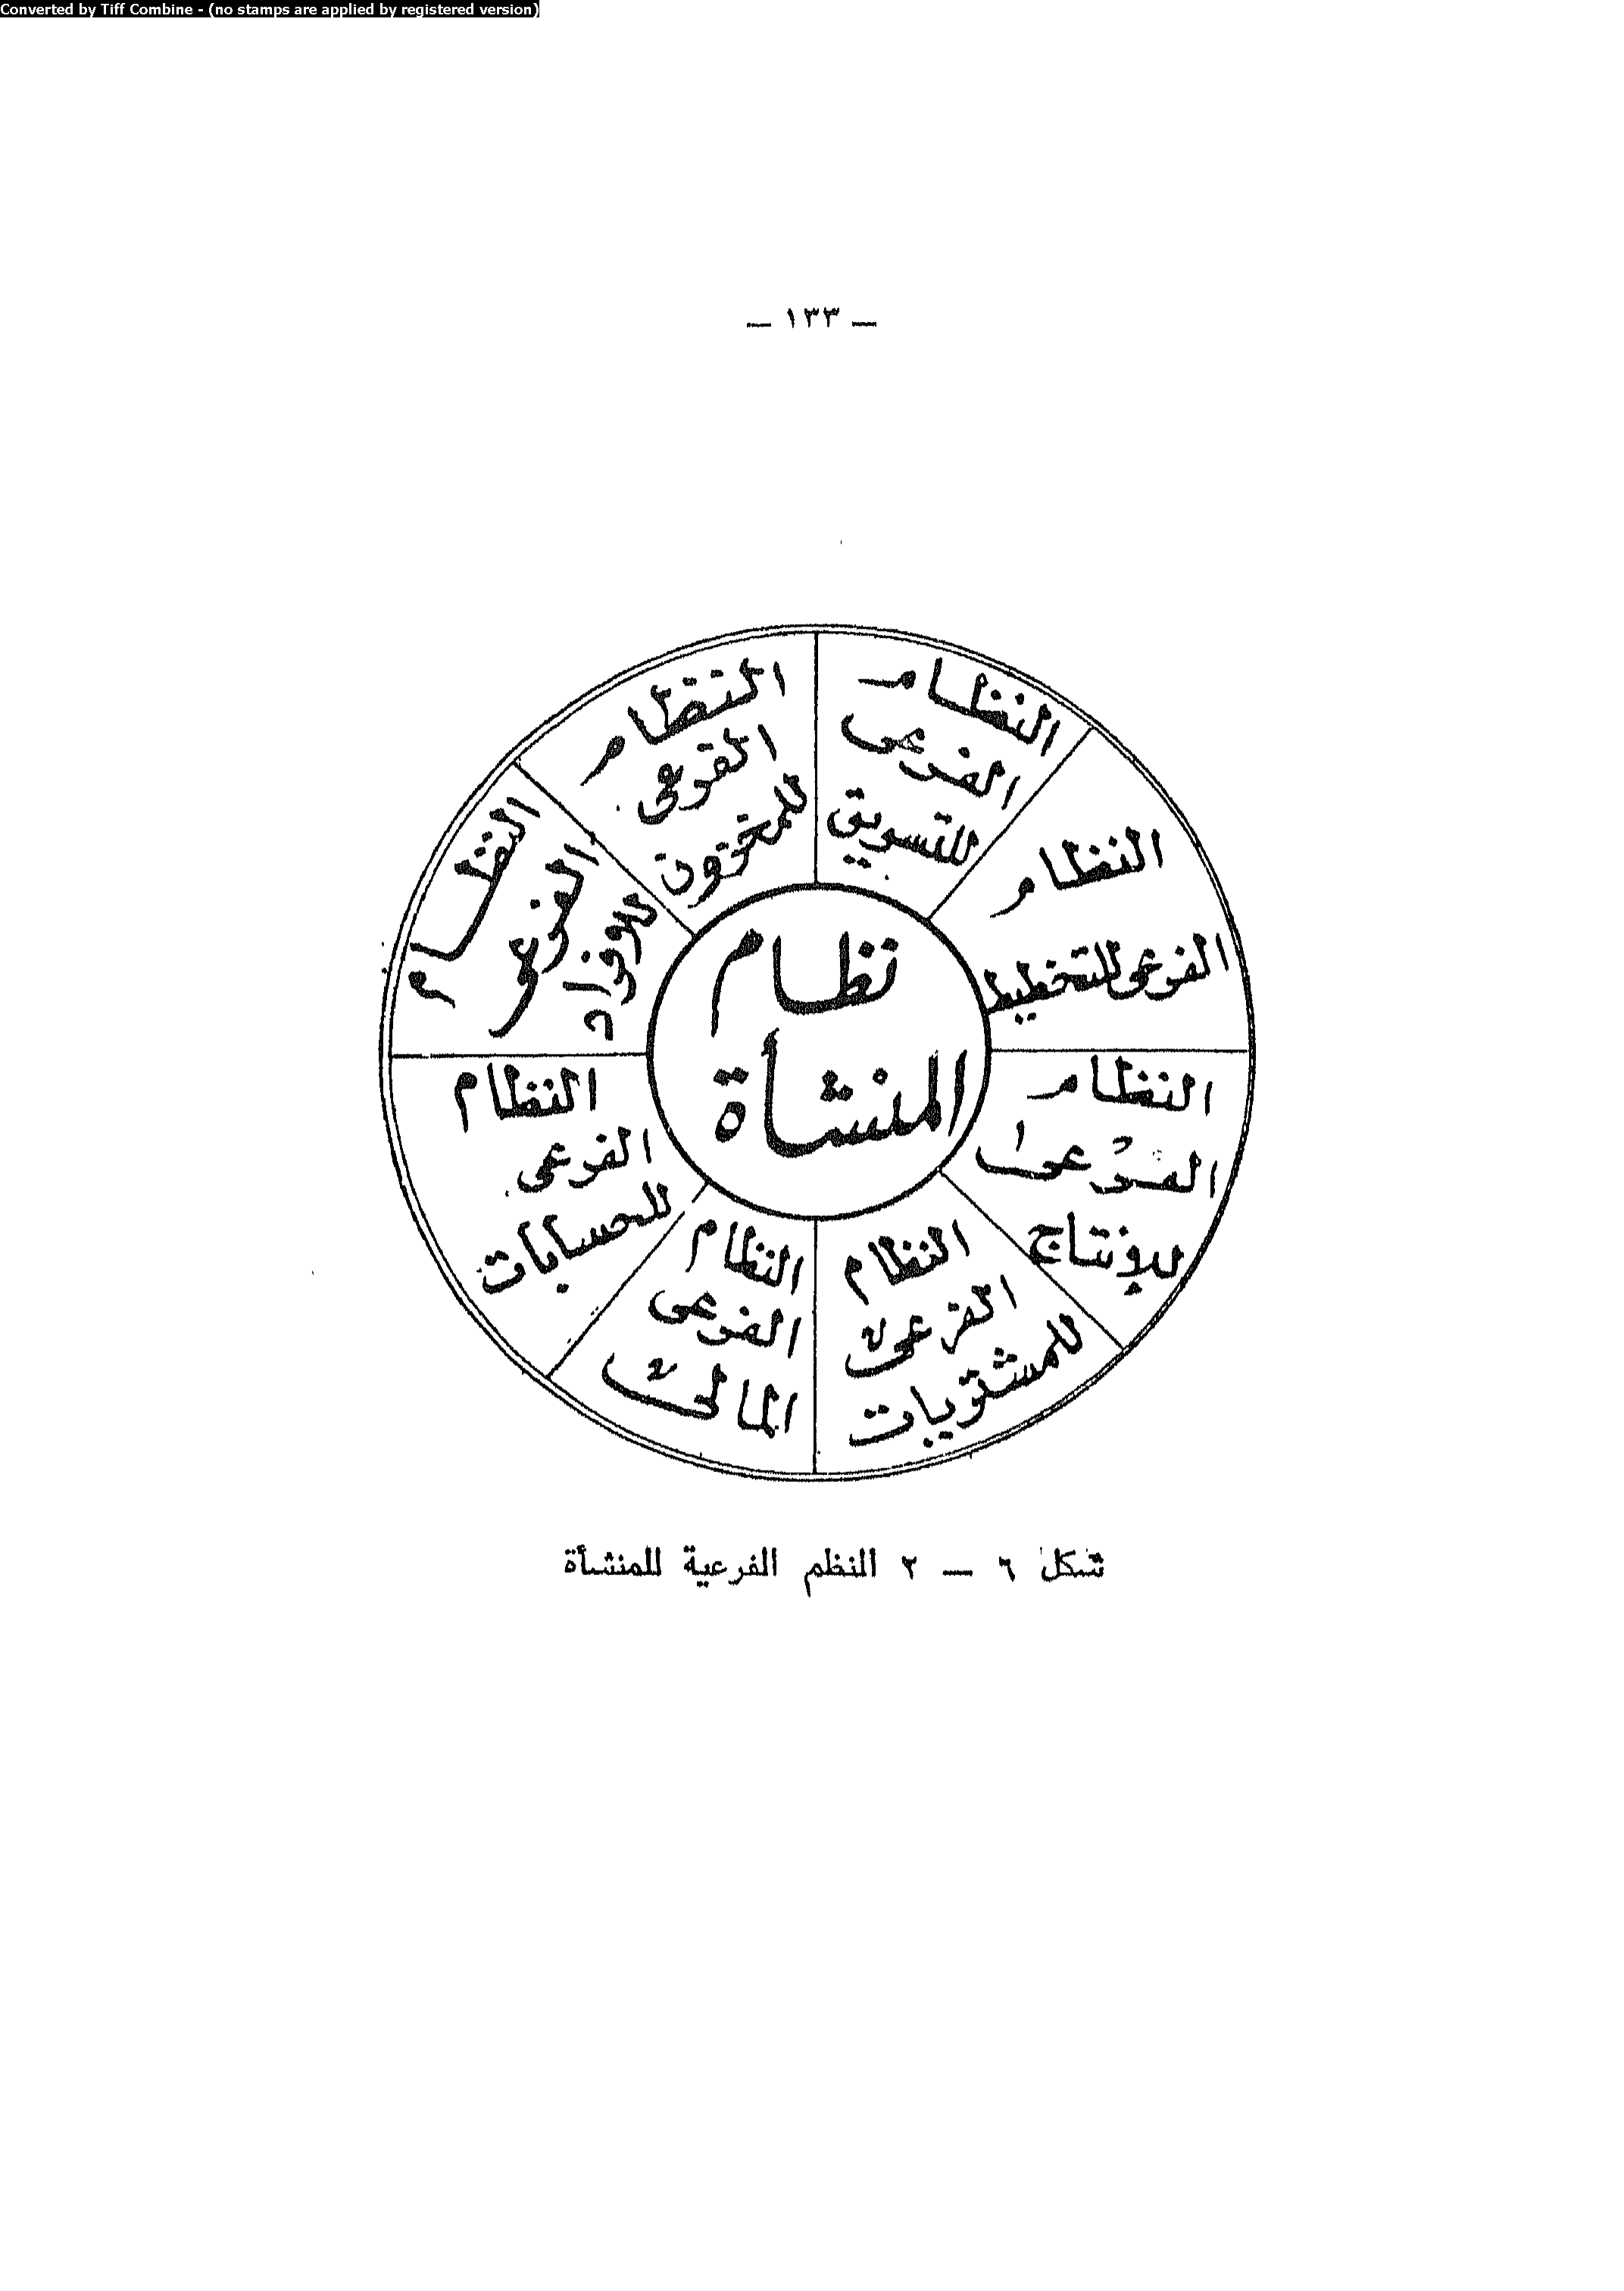 Converted by Tiff Combine - (no stamps are applied by registered version)
— ١٣٣ —
النظام
الفرعى
للتسويق
النظام
الفرعى للتخطيط
النظام
الفرعى
للإنتاج
النظام
الفرعى
للمشتريات
النظام
الفرعى
المالى
النظام
الفرعى
للحسابات
النظام
الفرعى
للأفراد
النظام
الفرعى
للمخزون
نظام
المنشأة
شكل ٦ — ٢ النظم الفرعية للمنشأة